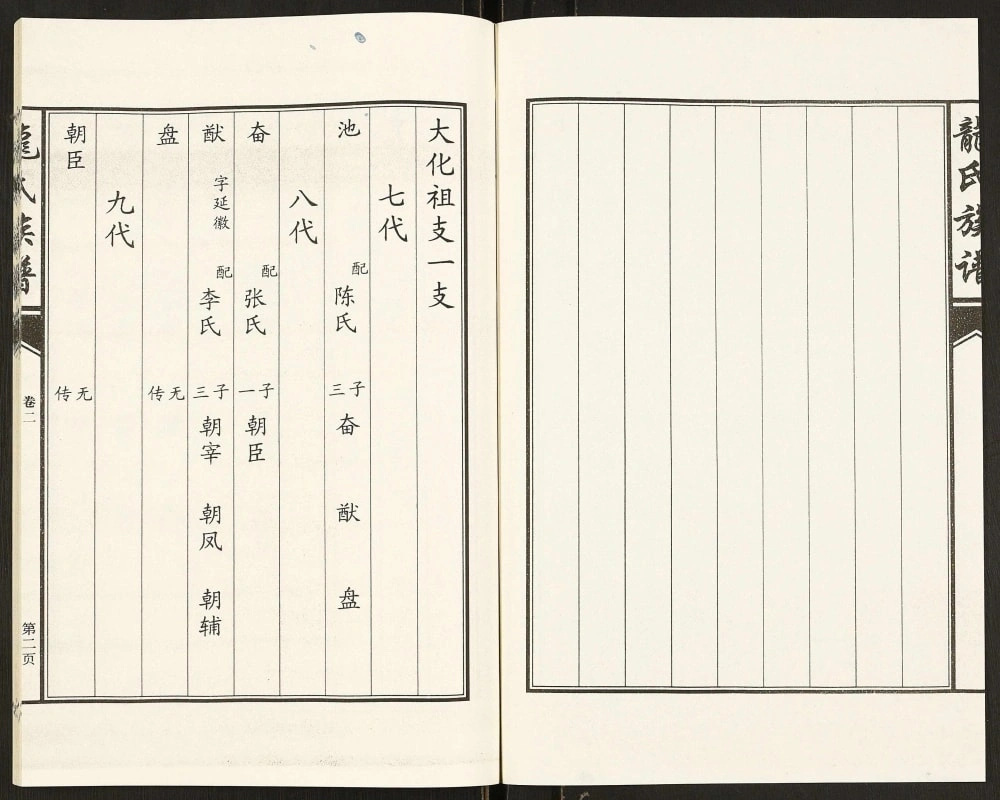 龍氏族谱
大化祖支一支
七代
池 配 陈氏 子三 奋 猷 盘
八代
奋 配 张氏 子一 朝臣
猷 字延徽 配 李氏 子三 朝宰 朝凤 朝辅
盘 无传
九代
朝臣 无传
龍氏族谱
卷二
第二页